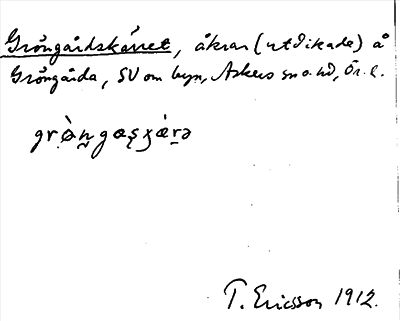 Gröngårdskärret, åkrar (utdikade) å
Gröngårda, SV om byn, Askers sn o. hd, Ör. l.
T. Ericsson 1912.